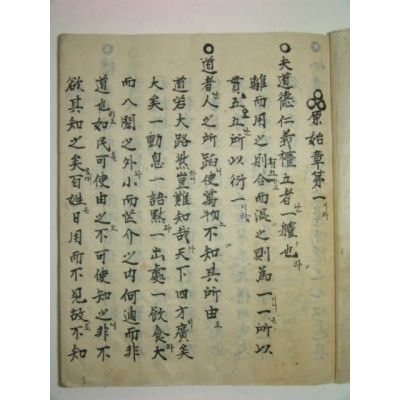 原始章第一이라
夫道德仁義禮五者난一軆也라
離而用之則有五합而混之則為一一所以
貫五五所以衍一
道者난人之所蹈使萬物不知其所由
道若大路然豈難知哉天下四方廣矣
大矣一動息一語默一出處一飮食大
而八閎之外小而芒介之内何適而非
道也如民可使由之不可使知之非不
欲其知之矣百姓日用而不見故不知